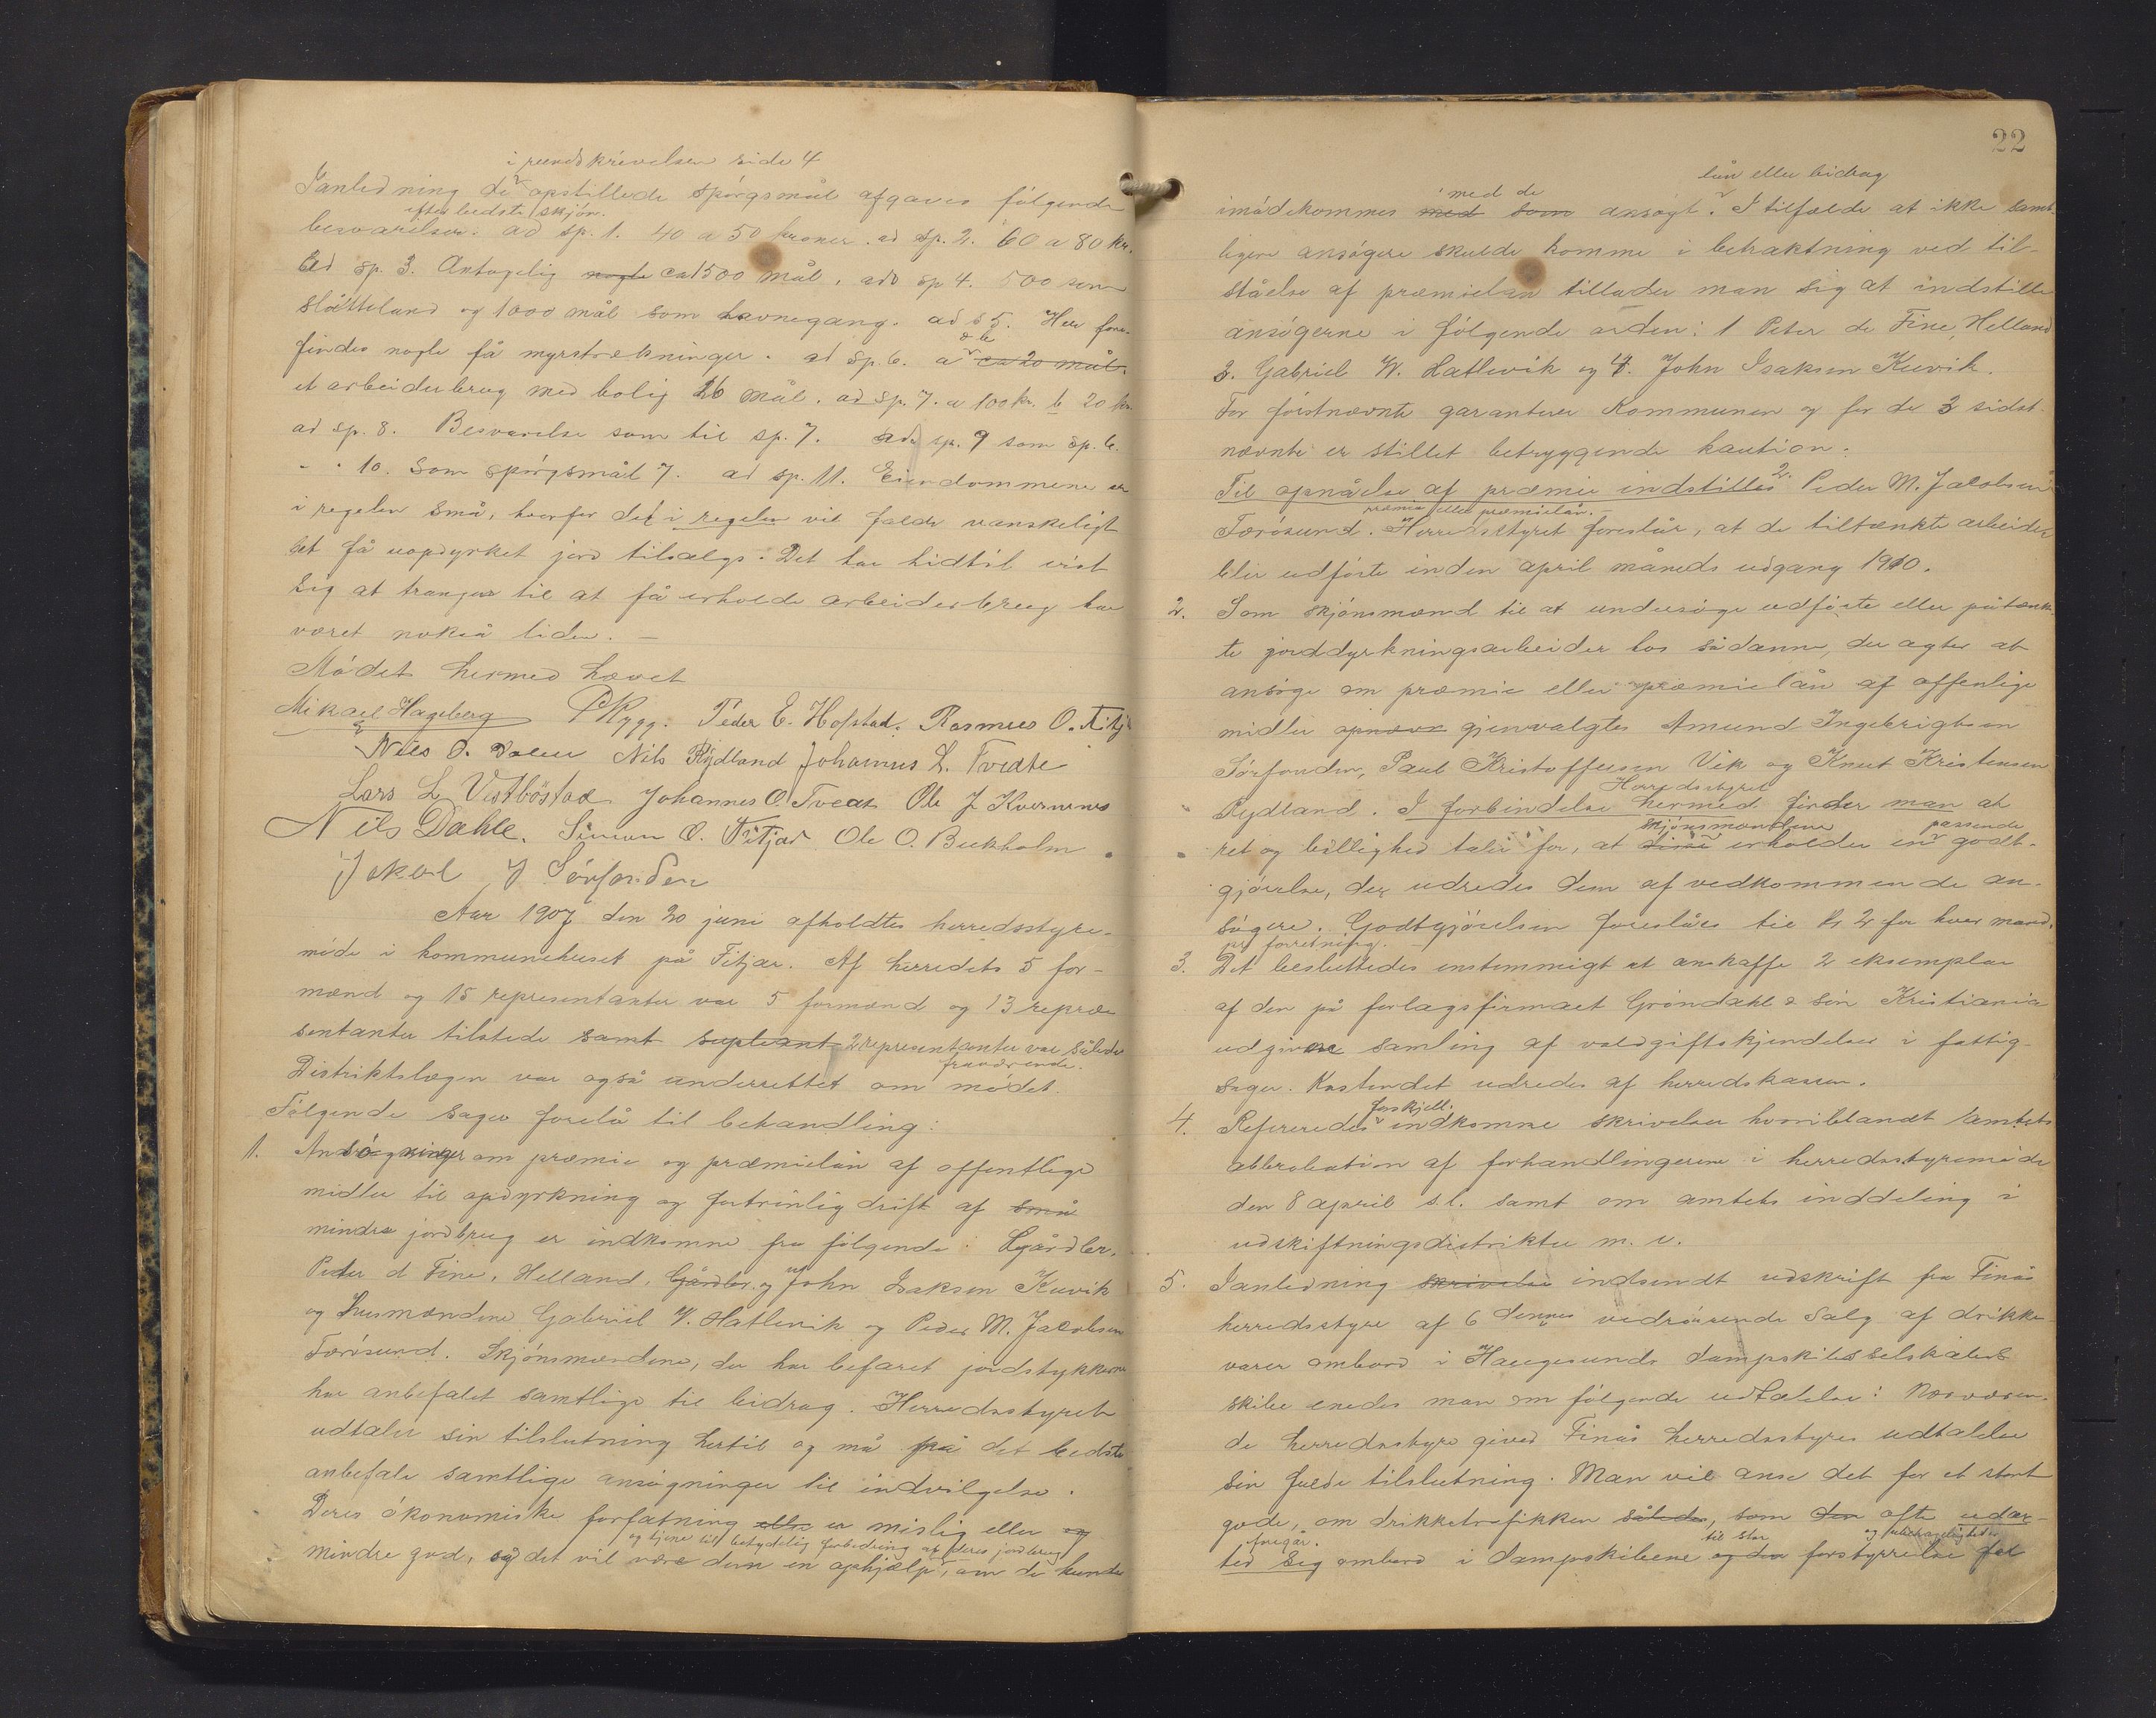 i rundskrivelsen side 4
Ianledning de opstillede spörgsmål afgaves fölgende
efter bedste skjön.
besvarelser. ad sp. 1. 40 a 50 kroner. ad sp. 2. 60 a 80 kr.
Ad sp. 3. Antagelig nogle ca 1500 mål, ad sp 4. 500 som
slåtteland og 1000 mål som havnegang. ad s 5. Her fore-
findes nogle få myrstrækninger. ad sp. 6. a ca 20 mål.
et arbeiderbrug med bolig 26 mål. ad sp. 7. a 100 kr. b 20 kr.
ad sp. 8. Besvarelse som til sp. 7. ad sp. 9 som sp. 6.
- - 10. Som spörgsmål 7. ad sp. 11. Eiendommene er
i regelen små, hvorfor det i regelen vil falde vanskeligt
at få uopdyrket jord tilsalgs. Det har hidtil vist
sig at trangen til at få erholde arbeiderbrug har
været nokså liden. —
Mödet hermed hævet
Mikael Hageberg P Rygg. Peder E. Hofstad. Rasmus O. Fitj
Nils O. Dalen Nils Rydland Johannes L. Tveite
Lars L Vestböstad Johannes O. Tveit Ole J Kvernenes
Nils Dahle. Simon O. Fitjar Ole O. Beekholm
Jakob J Sörfonden
Aar 1907 den 20 juni afholdtes herredsstyre-
möde i kommunehuset på Fitjar. Af herredets 5 for-
mænd og 15 representanter var 5 formænd og 13 repræ-
sentanter tilstede samt supleant 2 representanter var således
fraværende.
Distriktslægen var også underrettet om mödet.
Fölgende sager forelå til behandling:
1. Ansögninger om præmie og præmielån af offentlige
midler til opdyrkning og fortrinlig drift af små
mindre jordbrug er indkomne fra fölgende: Gårdbr.
Peder d Fine, Helland, Gårdbr. og John Isaksen Kuvik
og husmændene Gabriel W. Hatlevik og Peder M. Jacobsen
Færösund. Skjönsmændene, der har befaret jordstykkerne
har anbefalet samtlige til bidrag. Herredsstyret
udtaler sin tilslutning hertil og må på det bedste
anbefale samtlige ansögninger til indvilgelse.
Deres ökonomiske forfatning eller er mislig eller og
og tjene til betydelig forbedring af deres jordbrug
mindre god, og det vil være dem en ophjælp, om de kunde
22
lån eller bidrag
med de
imödekommes med som ansögt. I tilfælde at ikke samt-
ligere ansögere skulde komme i betraktning ved til-
ståelse af præmielån tillader man sig at indstille
ansögerne i fölgende orden: 1 Peter de Fine, Helland
3. Gabriel W. Hatlevik og 4. John Isaksen Kuvik.
For förstnævnte garanterer Kommunen og for de 3 sidst-
nævnte er stillet betryggende kaution.
Til opnåelse af præmie indstilles 2. Peder M. Jacobsen
præmie eller præmielån. -
Færösund. Herredsstyret foreslår, at de tiltænkte arbeider
blir udförte inden april måneds udgang 1910.
2. Som skjönsmænd til at undersöge udförte eller påtænk-
te jorddyrkningsarbeider hos sådanne, der agter at
ansöge om præmie eller præmielån af offenlige
midler opnævn gjenvalgtes Amund Ingebrigtsen
Sörfonden, Paul Kristoffersen Vik og Knut Kristensen
Herredsstyret
Rydland. I forbindelse hermed finder man at
skjönsmændene passende
ret og billighed taler for, at disse erholder en godt-
gjörelse, der udredes dem af vedkommende an-
sögere. Godtgjörelsen foreslåes til kr 2 for hver mand.
pr forretning.
3. Det besluttedes enstemmigt at anskaffe 2 eksemplar
af den på forlagsfirmaet Gröndahl & sön Kristiania
udgivne samling af voldgiftskjendelser i fattig-
sager. Kostendet udredes af herredskassen.
forskjell.
4. Refereredes indkomne skrivelser hvoriblandt amtets
abbrobation af forhandlingerne i herredsstyremöde
den 8 april s.l. samt om amtets inddeling i
udskiftningsdistrikter m. v.
5. Ianledning skrivelse indsendt udskrift fra Finås
herredsstyre af 6 dennes vedrörende salg af drikke
varer ombord i Haugesunds dampskibsselskabets
skibe enedes man om fölgende udtalelse: Nærværen-
de herredsstyre giver Finås herredsstyres udtalelse
sin fulde tilslutning. Man vil anse det for et stort
gode, om drikketrafikken således, som den ofte udar-
foregår. til stor og ubehageligheder
ted sig ombord i dampskibene og den forstyrrelse for